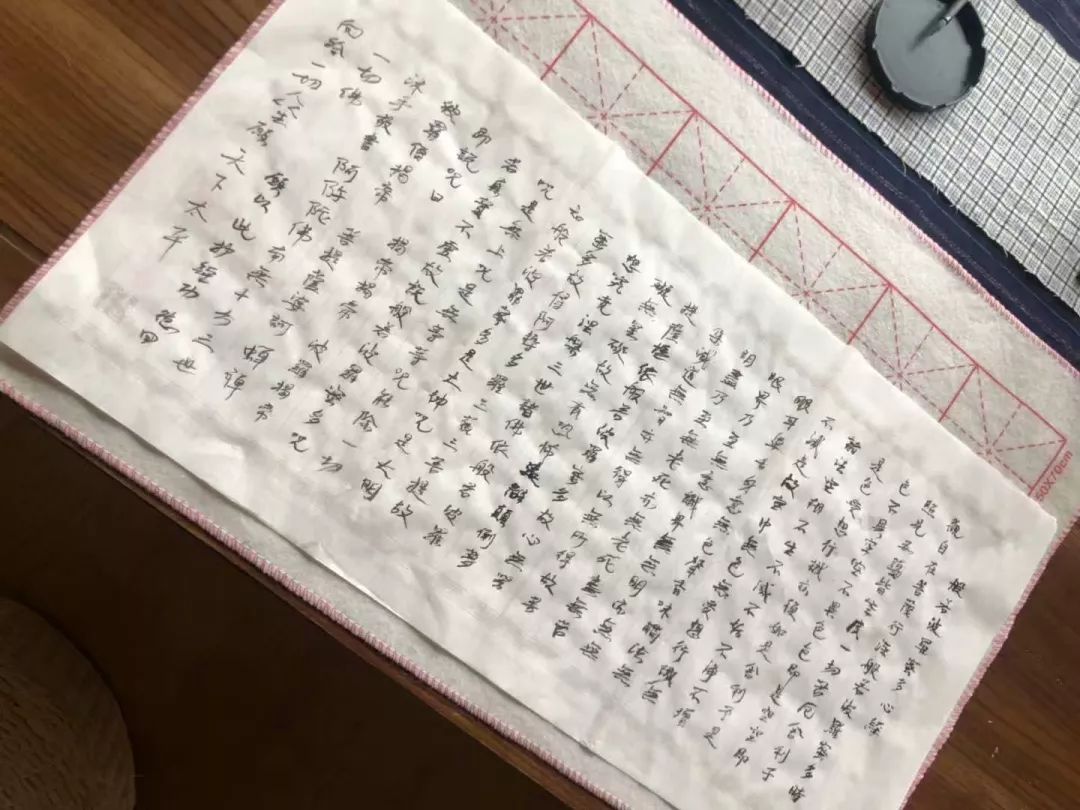 般若波羅蜜多心經
觀自在菩薩行深般若波羅蜜多時
照見五蘊皆空度一切苦厄舍利子
色不異空空不異色色即是空空即
是色受想行識亦復如是舍利子是
諸法空相不生不滅不垢不淨不增
不減是故空中無色無受想行識無
眼耳鼻舌身意無色聲香味觸法無
眼界乃至無意識界無無明亦無無
明盡乃至無老死亦無老死盡無苦
集滅道無智亦無得以無所得故菩
提薩埵依般若波羅蜜多故心無罣
礙無罣礙故無有恐怖遠離顛倒夢
想究竟涅槃三世諸佛依般若波羅
蜜多故得阿耨多羅三藐三菩提故
知般若波羅蜜多是大神咒是大明
咒是無上咒是無等等咒能除一切
苦真實不虛故說般若波羅蜜多咒
即說咒曰 揭帝揭帝 波羅揭帝
波羅僧揭帝 菩提薩婆訶
沐手敬書 阿弥陀佛 南無十方三世
一切佛 以此抄經功德回
向給一切众生 願天下太平
50X70cm